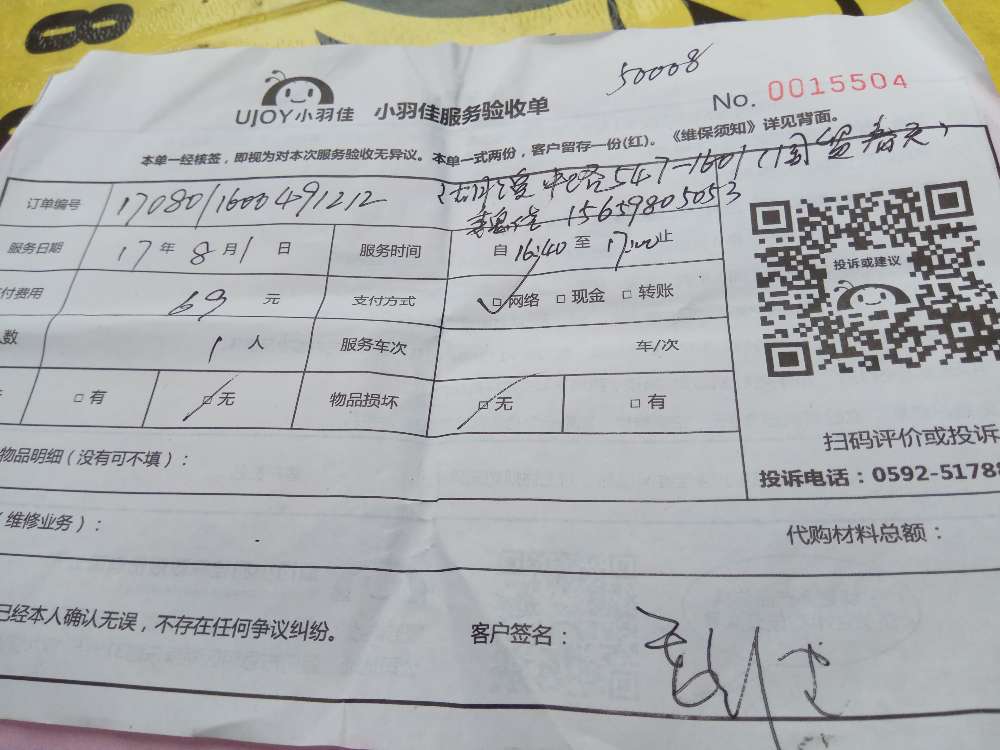 8
50008
UJOY小羽佳 小羽佳服务验收单
No. 0015504
本单一经核签，即视为对本次服务验收无异议。本单一式两份，客户留存一份(红)。《维保须知》详见背面。
中路547-1601(国贸春天)
订单编号 1708011600491212
15659805053
服务日期 17年8月1日 服务时间 自16:40至17:00止
付费用 69元 支付方式 □网络 □现金 □转账
数 1人 服务车次 车/次
□有 □无 物品损坏 □无 □有
投诉或建议
扫码评价或投诉
物品明细（没有可不填）：
投诉电话：0592-5178
（维修业务）：
代购材料总额：
已经本人确认无误，不存在任何争议纠纷。
客户签名：